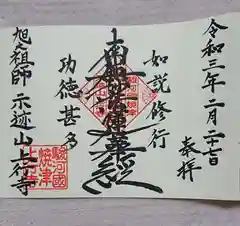 令和三年二月二十七日
奉拝
如説修行
南無妙法蓮華経
功徳甚多
旭之祖師 示迹山上行寺
駿河國
焼津
上行寺